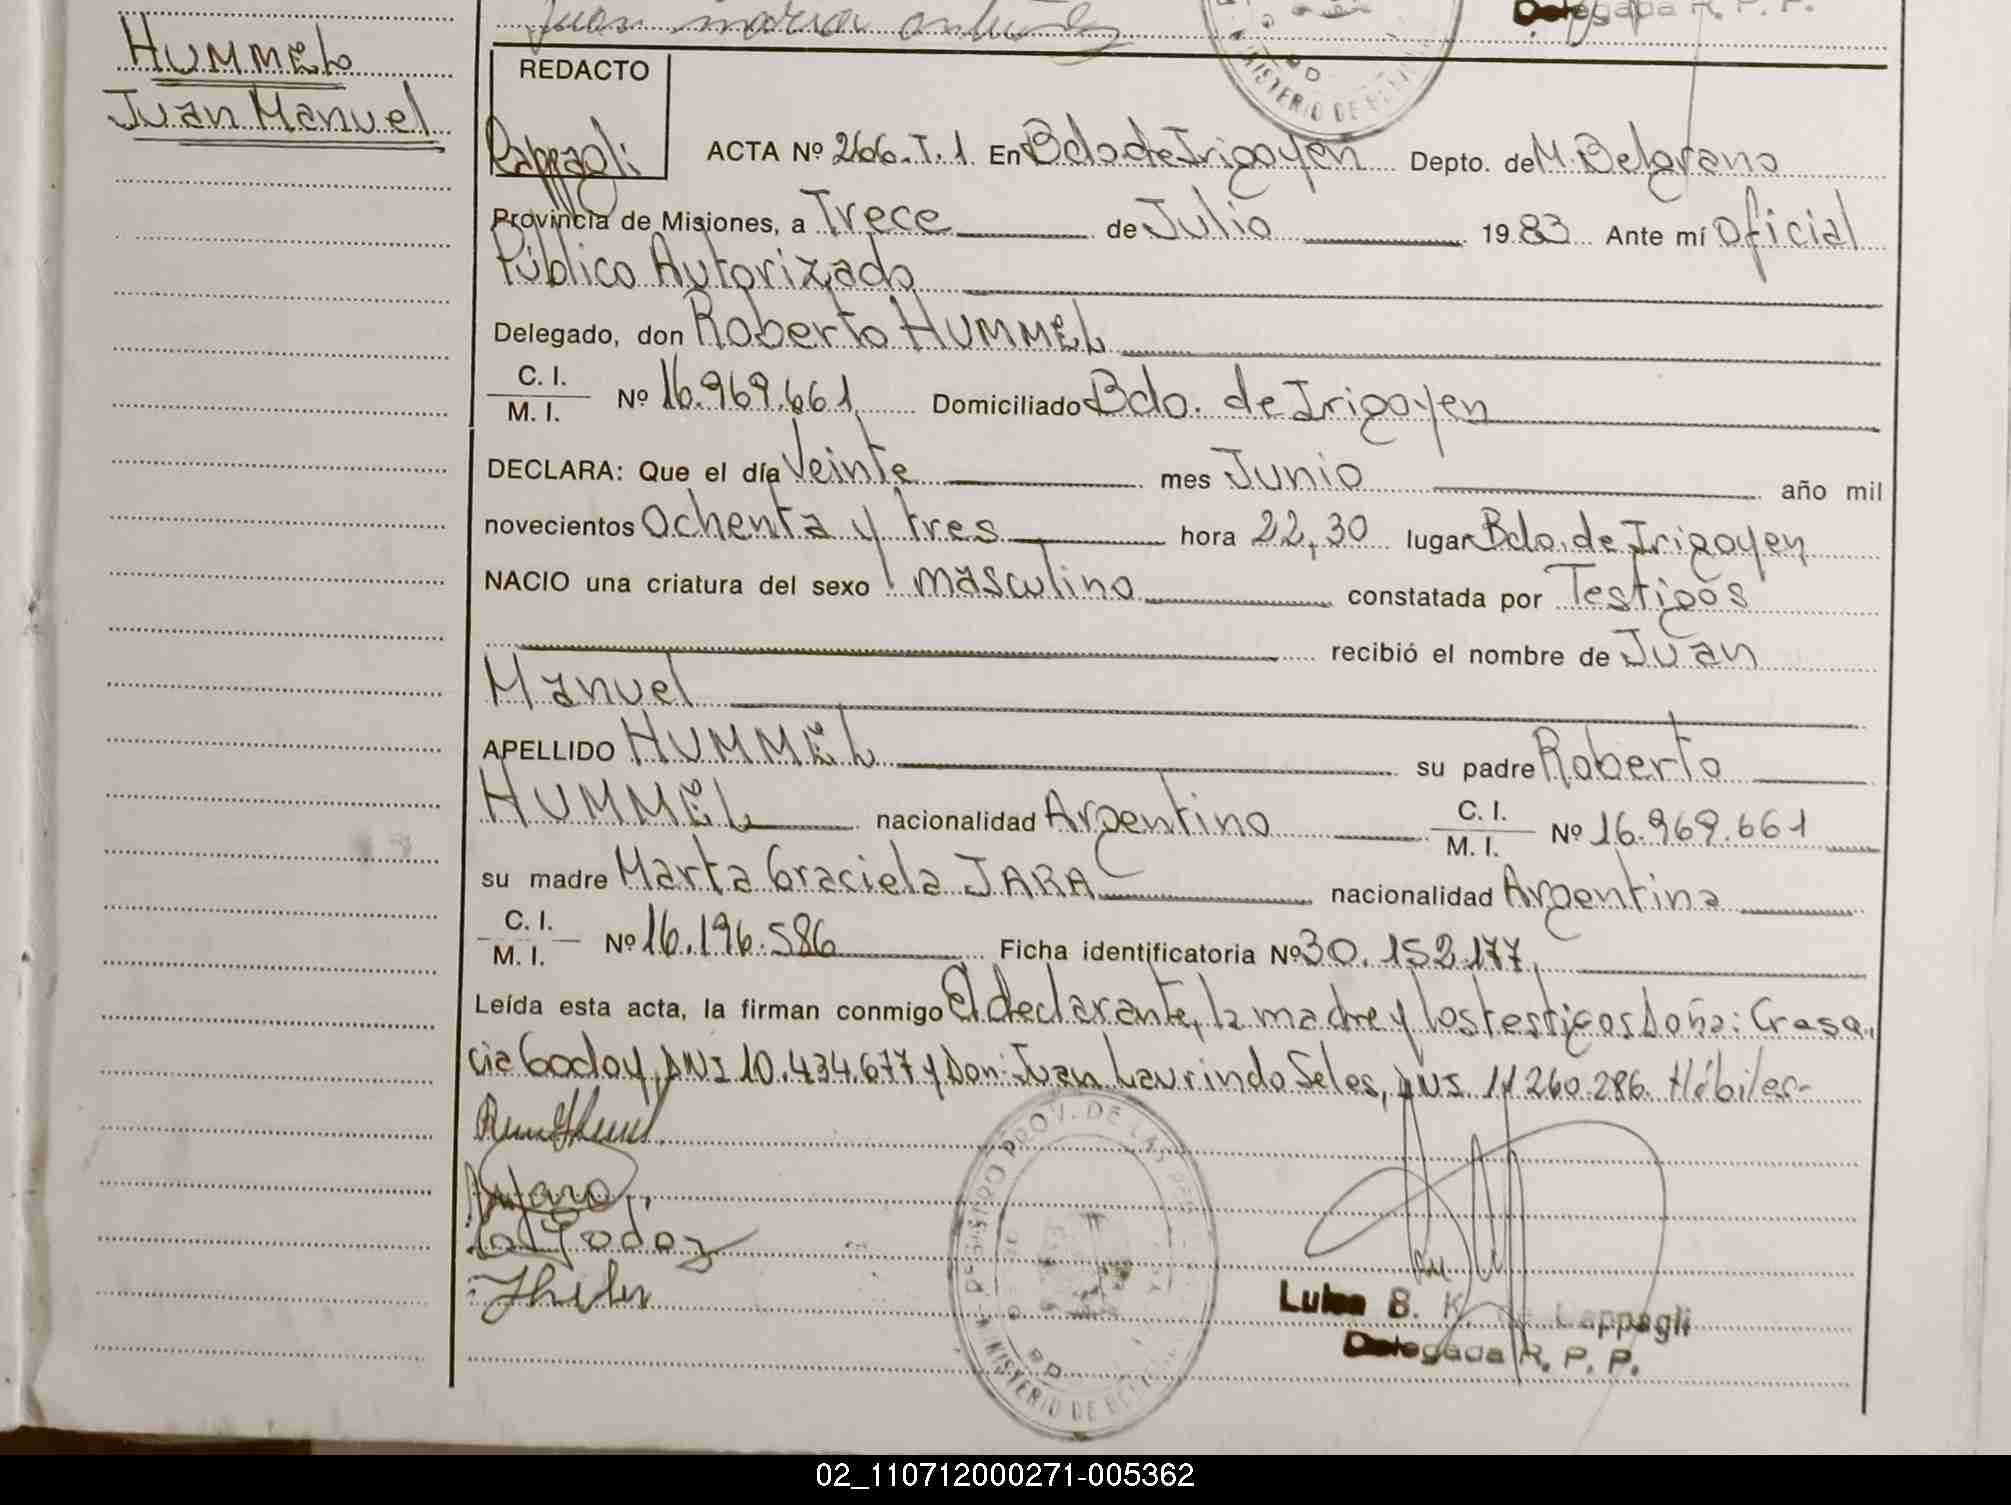 Juan Maria Antunez
Delegada R. P. P.
HUMMEL
Juan Manuel
REDACTO
Rappagli
ACTA Nº 266.T.1 En Bdo de Irigoyen Depto. de M. Belgrano
Provincia de Misiones, a Trece de Julio 1983 Ante mí Oficial
Público Autorizado
Delegado, don Roberto HUMMEL
C. I.
M. I. Nº 16.969.661 Domiciliado Bdo. de Irigoyen
DECLARA: Que el día Veinte mes Junio año mil
novecientos Ochenta y tres hora 22,30 lugar Bdo. de Irigoyen
NACIO una criatura del sexo masculino constatada por Testigos
recibió el nombre de Juan
Manuel
APELLIDO HUMMEL su padre Roberto
HUMMEL nacionalidad Argentino C. I.
M. I. Nº 16.969.661
su madre Marta Graciela JARA nacionalidad Argentina
C. I.
M. I. Nº 16.196.586 Ficha identificatoria Nº 30.152.177
Leída esta acta, la firman conmigo El declarante, la madre y los testigos Doña:
cia Godoy, DNI 10.434.677 y Don: Juan Laurindo Seles, DNI. 11.260.286. Hábiles-
Godoy
REGISTRO PROV. DE LAS
MINISTERIO DE
Luisa B. K. Cappagli
Delegada R. P. P.
02_110712000271-005362